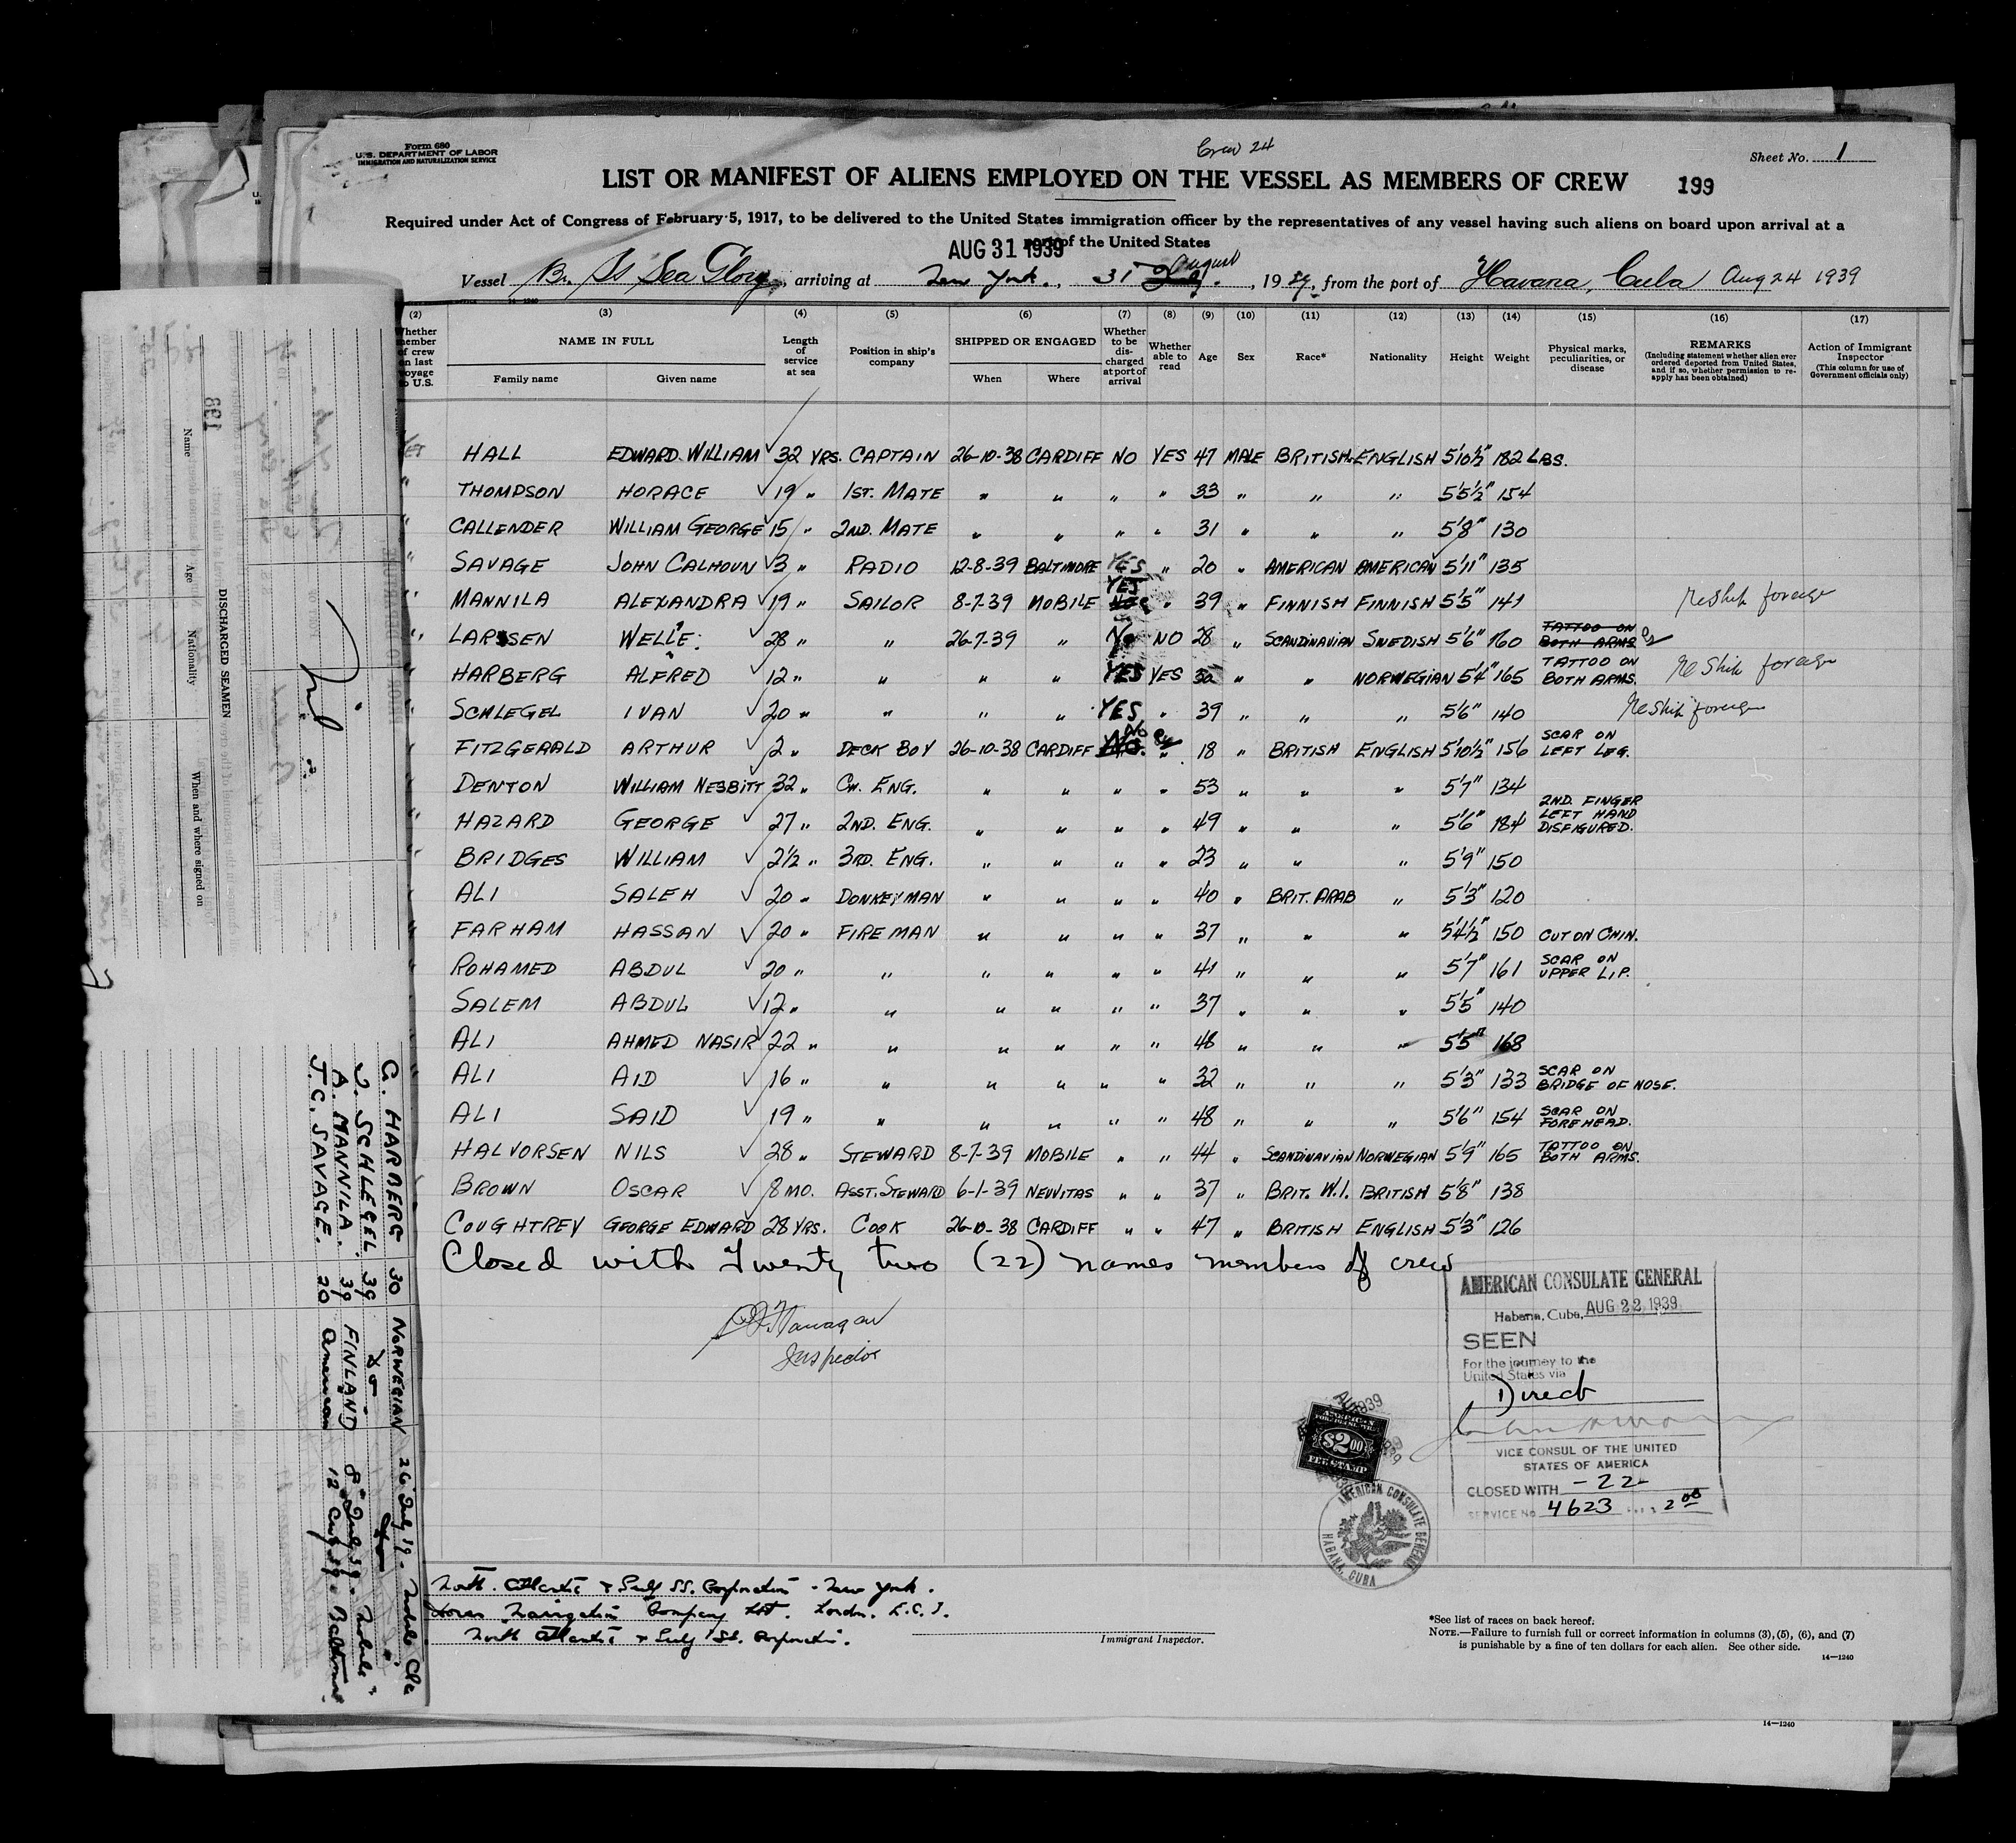 Form 680
U.S. DEPARTMENT OF LABOR
IMMIGRATION AND NATURALIZATION SERVICE
Crew 24
Sheet No. 1
LIST OR MANIFEST OF ALIENS EMPLOYED ON THE VESSEL AS MEMBERS OF CREW 199
Required under Act of Congress of February 5, 1917, to be delivered to the United States immigration officer by the representatives of any vessel having such aliens on board upon arrival at a
port of the United States
AUG 31 1939
Vessel Br. Ss Sea Glory, arriving at New York., 31 August, 1939, from the port of Havana, Cuba Aug 24 1939
(2) (3) (4) (5) (6) (7) (8) (9) (10) (11) (12) (13) (14) (15) (16) (17)
Whether member of crew on last voyage to U.S.
NAME IN FULL
Family name Given name
Length of service at sea
Position in ship's company
SHIPPED OR ENGAGED
When Where
Whether to be discharged at port of arrival
Whether able to read
Age Sex Race* Nationality Height Weight
Physical marks, peculiarities, or disease
REMARKS
(Including statement whether alien ever ordered deported from United States, and if so, whether permission to re-apply has been obtained)
Action of Immigrant Inspector
(This column for use of Government officials only)
HALL EDWARD WILLIAM 32 YRS. CAPTAIN 26-10-38 CARDIFF NO YES 47 MALE BRITISH ENGLISH 5'10½" 182 LBS.
" THOMPSON HORACE 19 " 1ST. MATE " " " " 33 " " " 5'5½" 154
" CALLENDER WILLIAM GEORGE 15 " 2ND. MATE " " " " 31 " " " 5'8" 130
" SAVAGE JOHN CALHOUN 3 " RADIO 12-8-39 BALTIMORE YES " 20 " AMERICAN AMERICAN 5'11" 135
" MANNILA ALEXANDRA 19 " SAILOR 8-7-39 MOBILE YES " 39 " FINNISH FINNISH 5'5" 141 reship foreign
" LARSSEN WELLE: 28 " " 26-7-39 " No NO 28 " SCANDINAVIAN SWEDISH 5'6" 160 TATTOO ON BOTH ARMS
" HARBERG ALFRED 12 " " " " YES YES 30 " " NORWEGIAN 5'4" 165 TATTOO ON BOTH ARMS. reship foreign
" SCHLEGEL IVAN 20 " " " " YES " 39 " " " 5'6" 140 reship foreign
" FITZGERALD ARTHUR 2 " DECK BOY 26-10-38 CARDIFF No " 18 " BRITISH ENGLISH 5'10½" 156 SCAR ON LEFT LEG.
" DENTON WILLIAM NESBITT 32 " CH. ENG. " " " " 53 " " " 5'7" 134
" HAZARD GEORGE 27 " 2ND. ENG. " " " " 49 " " " 5'6" 184 2ND. FINGER LEFT HAND DISFIGURED.
" BRIDGES WILLIAM 2½ " 3RD. ENG. " " " " 23 " " " 5'9" 150
" ALI SALEH 20 " DONKEYMAN " " " " 40 " BRIT. ARAB " 5'3" 120
" FARHAM HASSAN 20 " FIREMAN " " " " 37 " " " 5'4½" 150 CUT ON CHIN.
" ROHAMED ABDUL 20 " " " " " " 41 " " " 5'7" 161 SCAR ON UPPER LIP.
" SALEM ABDUL 12 " " " " " " 37 " " " 5'5" 140
" ALI AHMED NASIR 22 " " " " " " 48 " " " 5'5" 168
" ALI AID 16 " " " " " " 32 " " " 5'3" 133 SCAR ON BRIDGE OF NOSE.
ALI SAID 19 " " " " " " 48 " " " 5'6" 154 SCAR ON FOREHEAD.
HALVORSEN NILS 28 " STEWARD 8-7-39 MOBILE " " 44 " SCANDINAVIAN NORWEGIAN 5'9" 165 TATTOO ON BOTH ARMS.
BROWN OSCAR 8 MO. ASST. STEWARD 6-1-39 NEUVITAS " " 37 " BRIT. W.I. BRITISH 5'8" 138
COUGHTREY GEORGE EDWARD 28 YRS. COOK 26-10-38 CARDIFF " " 47 " BRITISH ENGLISH 5'3" 126
Closed with Twenty two (22) names members of crew
Flanagan
Inspector
AMERICAN CONSULATE GENERAL
Habana, Cuba, AUG 22 1939
SEEN
For the journey to the
United States via
Direct
VICE CONSUL OF THE UNITED
STATES OF AMERICA
CLOSED WITH -22
SERVICE No. 4623 2.00
AMERICAN
FOREIGN SERVICE
$2.00
FEE STAMP
AMERICAN CONSULATE GENERAL
HABANA, CUBA
North Atlantic & Gulf SS. Corporation - New York.
Dover Navigation Company Ltd. London. E.C.3.
North Atlantic & Gulf SS. Corporation.
Immigrant Inspector.
*See list of races on back hereof.
NOTE.—Failure to furnish full or correct information in columns (3), (5), (6), and (7)
is punishable by a fine of ten dollars for each alien. See other side.
14—1240
14—1240
198
DISCHARGED SEAMEN
Name Age Nationality When and where signed on
Nil
G. HARBERG 30 NORWEGIAN 26 July 39 - Mobile Ala
J. SCHLEGEL 39 Do
A. MANNILA. 39 FINLAND 8 July 39 - Mobile "
J.C. SAVAGE. 20 American 12 Aug 39 - Baltimore